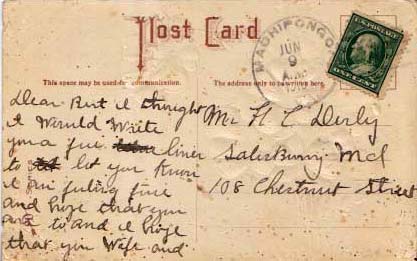 Post Card
This space may be used for communication.
The address only to be written here.
MACHIPONGO
JUN
9
A.M.
U.S. POSTAGE
ONE CENT
Dear Burt I thought
I Would Write
you a fue liner
to let you Know
I am fuling fine
and hope that you
are to and I hope
that you Wife and
Mr H C Derby
Salisbury Md
108 Chestnut Street